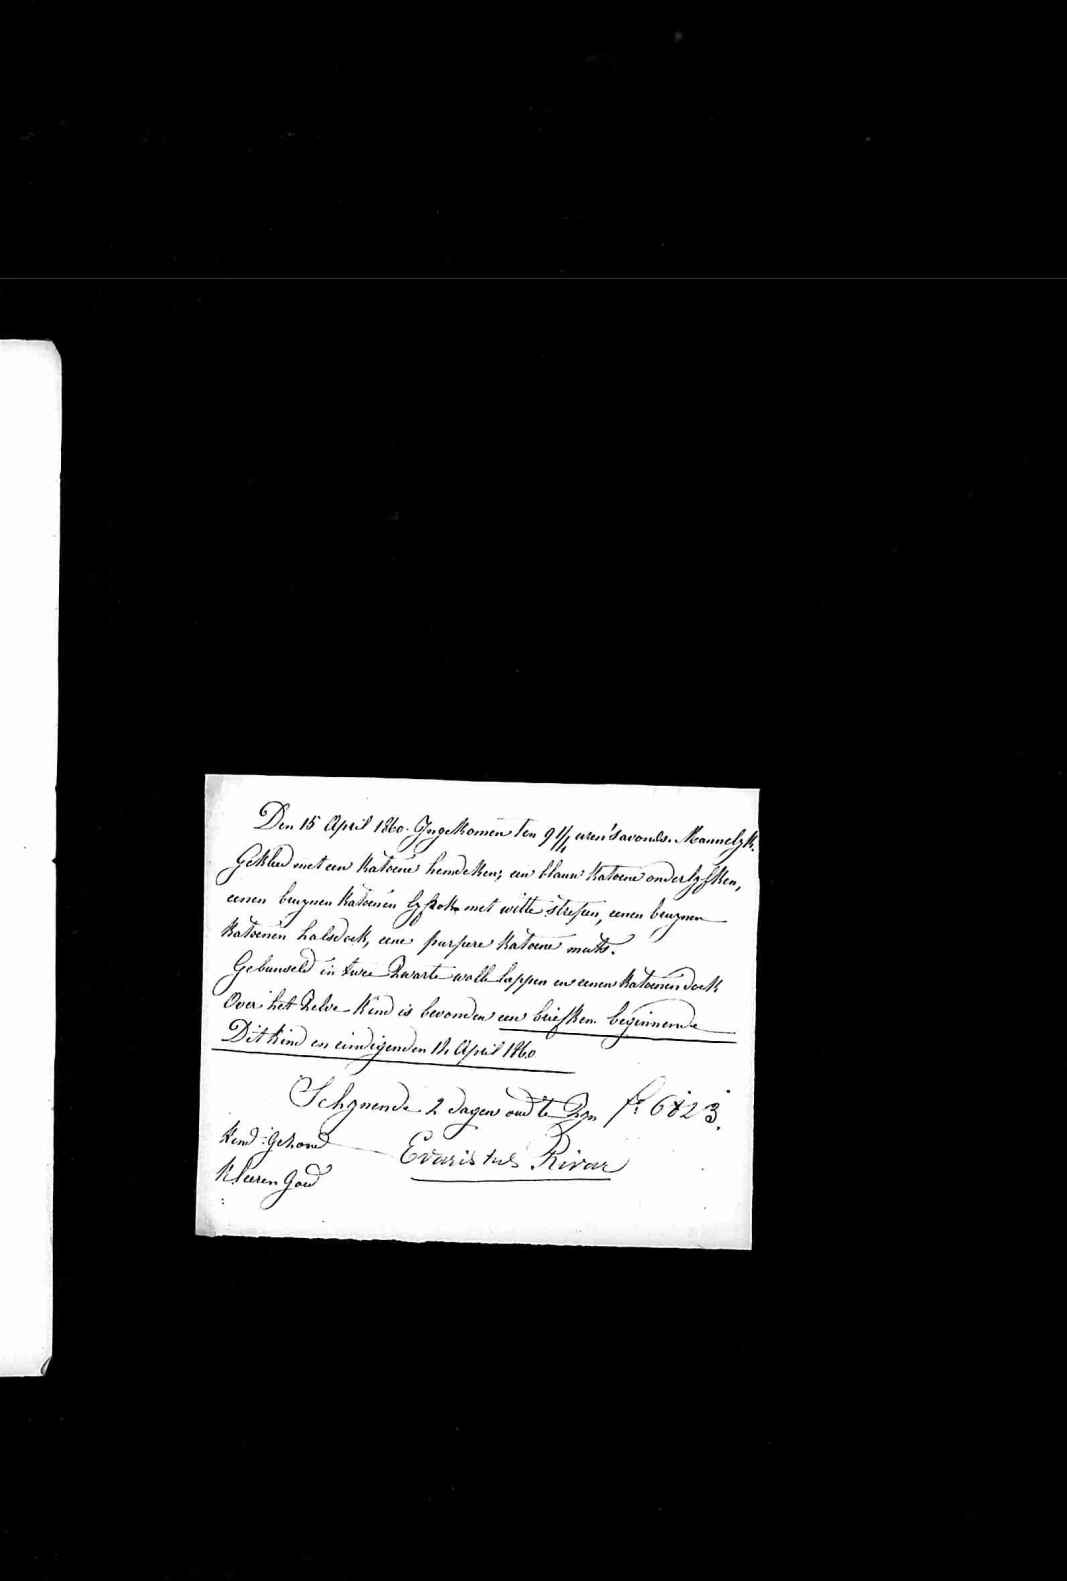 Den 15 April 1860. Ingekomen ten 9 1/4 uren 's avonds. Mannelyk.
Gekleed met een katoene hemdeken; een blauw katoene onderlyfken,
eenen bruynen katoenen lyfrok met witte strepen, eenen bruynen
katoenen halsdoek, eene purpere katoene muts.
Gebunseld in twee zwarte wolle lappen en eenen katoenen doek
Over het zelve kind is bevonden een briefken beginnende
Dit kind en eindigende April 1860
Schynende 2 dagen oud te zyn f. 6823.
Kind: Gezond Evaristus Rivar
Kleeren Goed